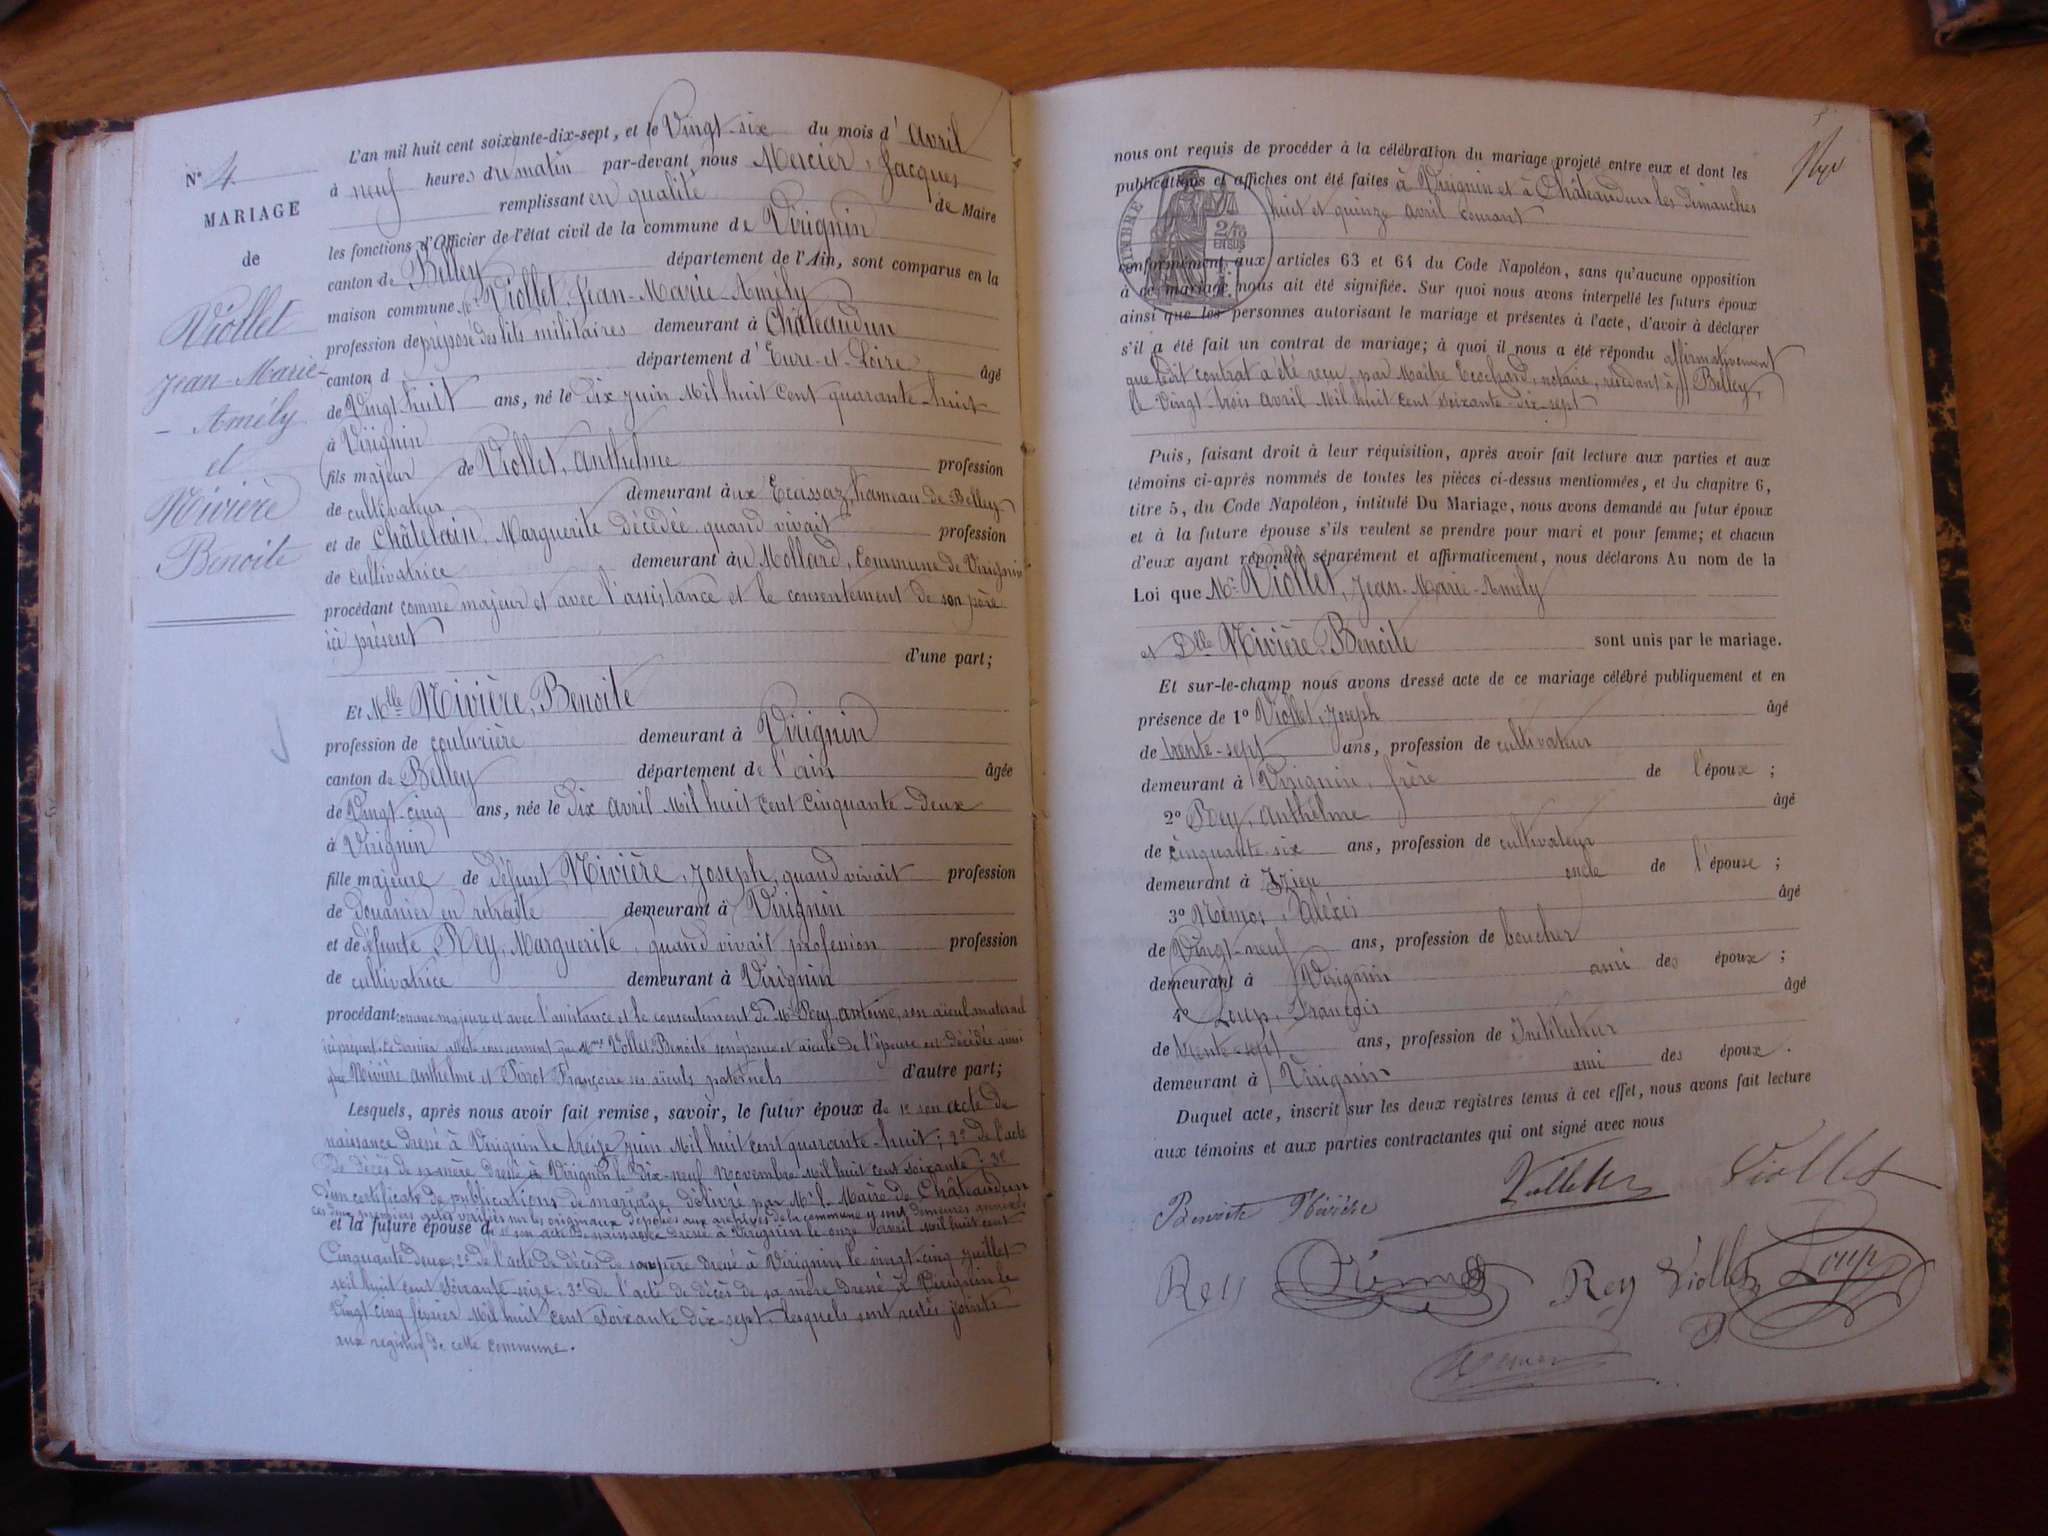 N° 4
MARIAGE
de
Viollet
Jean-Marie-
- Amély
et
Nivière
Benoite
L'an mil huit cent soixante-dix-sept, et le Vingt-six du mois d' Avril
à neuf heures du matin par-devant nous Mercier, Jacques
remplissant en qualité de Maire
les fonctions d'Officier de l'état civil de la commune de Virignin
canton de Belley département de l'Ain, sont comparus en la
maison commune Mr Viollet, Jean-Marie-Amély
profession de préposé des lits militaires demeurant à Châteaudun
canton d département d' Eure-et-Loire âgé
de Vingt huit ans, né le dix juin Mil huit cent quarante-huit
à Virignin
fils majeur de Viollet, Anthelme profession
de cultivateur demeurant aux Ecassaz, hameau de Belley
et de Châtelain, Marguerite décédée quand vivait profession
de cultivatrice demeurant au Mollard, Commune de Virignin
procédant comme majeur et avec l'assistance et le consentement de son père
ici présent
d'une part;
Et Mlle Nivière, Benoite
profession de couturière demeurant à Virignin
canton de Belley département de l'ain âgée
de Vingt-cinq ans, née le dix avril Mil huit cent cinquante-deux
à Virignin
fille majeure de défunt Nivière, Joseph, quand vivait profession
de douanier en retraite demeurant à Virignin
et de défunte Rey, Marguerite, quand vivait profession profession
de cultivatrice demeurant à Virignin
procédant comme majeure et avec l'assistance et le consentement de Mr Rey, Antoine, son aïeul maternel
ici présent. Ce dernier atteste sous serment que Mme Vollet, Benoite son épouse et aïeule de l'épouse est décédée ainsi
que Nivière Anthelme et Perret Françoise ses aïeuls paternels d'autre part;
Lesquels, après nous avoir fait remise, savoir, le futur époux de 1° son acte de
naissance dressé à Virignin le treize juin Mil huit cent quarante-huit; 2° de l'acte
de décès de sa mère dressé à Virignin le dix-neuf Novembre Mil huit cent soixante; 3°
d'un certificat de publications de mariage délivré par Mr le Maire de Châteaudun
ces deux premiers actes vérifiés sur les originaux déposés aux archives de la commune y sont demeurés annexés
et la future épouse de 1° son acte de naissance dressé à Virignin le onze avril Mil huit cent
Cinquante-deux; 2° de l'acte de décès de son père dressé à Virignin le vingt-cinq juillet
Mil huit cent soixante-seize, 3° de l'acte de décès de sa mère dressé à Virignin le
Vingt-cinq février Mil huit cent soixante-dix-sept, lesquels sont restés joints
aux registres de cette commune.
5
nous ont requis de procéder à la célébration du mariage projeté entre eux et dont les
publications et affiches ont été faites à Virignin et à Châteaudun les dimanches
huit et quinze avril courant
TIMBRE
2/10
EN SUS
conformément aux articles 63 et 64 du Code Napoléon, sans qu'aucune opposition
à ce mariage nous ait été signifiée. Sur quoi nous avons interpellé les futurs époux
ainsi que les personnes autorisant le mariage et présentes à l'acte, d'avoir à déclarer
s'il a été fait un contrat de mariage; à quoi il nous a été répondu affirmativement
que ledit contrat a été reçu par Maître Ecochard, notaire, résidant à Belley,
le Vingt-trois avril Mil huit cent soixante-dix-sept
Puis, faisant droit à leur réquisition, après avoir fait lecture aux parties et aux
témoins ci-après nommés de toutes les pièces ci-dessus mentionnées, et du chapitre 6,
titre 5, du Code Napoléon, intitulé Du Mariage, nous avons demandé au futur époux
et à la future épouse s'ils veulent se prendre pour mari et pour femme; et chacun
d'eux ayant répondu séparément et affirmativement, nous déclarons Au nom de la
Loi que Mr Viollet, Jean-Marie-Amély
et Dlle Nivière, Benoite sont unis par le mariage.
Et sur-le-champ nous avons dressé acte de ce mariage célébré publiquement et en
présence de 1° Viollet, Joseph âgé
de trente-sept ans, profession de cultivateur
demeurant à Virignin, frère de l'époux ;
2° Rey, Anthelme âgé
de cinquante-six ans, profession de cultivateur
demeurant à Izieu oncle de l'épouse ;
3° Némoz, Alexis âgé
de Vingt-neuf ans, profession de boucher
demeurant à Virignin ami des époux ;
4° Loup, François âgé
de trente-sept ans, profession de Instituteur
demeurant à Virignin ami des époux.
Duquel acte, inscrit sur les deux registres tenus à cet effet, nous avons fait lecture
aux témoins et aux parties contractantes qui ont signé avec nous
Benoite Nivière Viollet
Rey Rey Viollet Loup